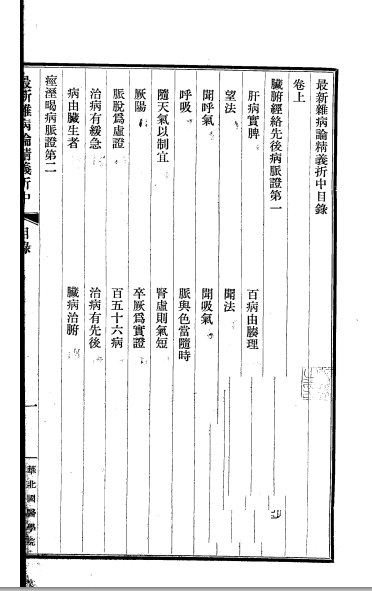 最新雜病論精義折中目錄
卷上
臟腑經絡先後病脈證第一
肝病實脾
百病由腠理
望法
聞法
聞呼氣
聞吸氣
呼吸
脈與色當隨時
隨天氣以制宜
腎虛則氣短
厥陽
卒厥爲實證
脈脫爲虛證
百五十六病
治病有緩急
治病有先後
病由臟生者
臟病治腑
痙溼暍病脈證第二
最新雜病論精義折中
目錄
一
華北國醫學院